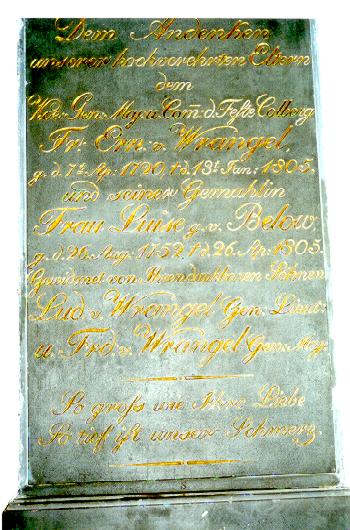 Dem Andenken
unserer hochverehrten Eltern
dem
Gen. Maj. u. Com. d. Feste Colberg
Fr. Ern. v. Wrangel,
g. d. 7t. Ap. 1720, † d. 13t. Jan. 1805.
und seiner Gemahlin
Frau Luise g. v. Below,
g. d. 26. Aug. 1752. † d. 26. Ap. 1803.
Gewidmet von Ihren dankbaren Söhnen
Lud. v. Wrangel Gen. Lieut.
u. Frd. v. Wrangel Gen. Maj.
So groſs wie Ihre Liebe
So tief ist unser Schmerz.